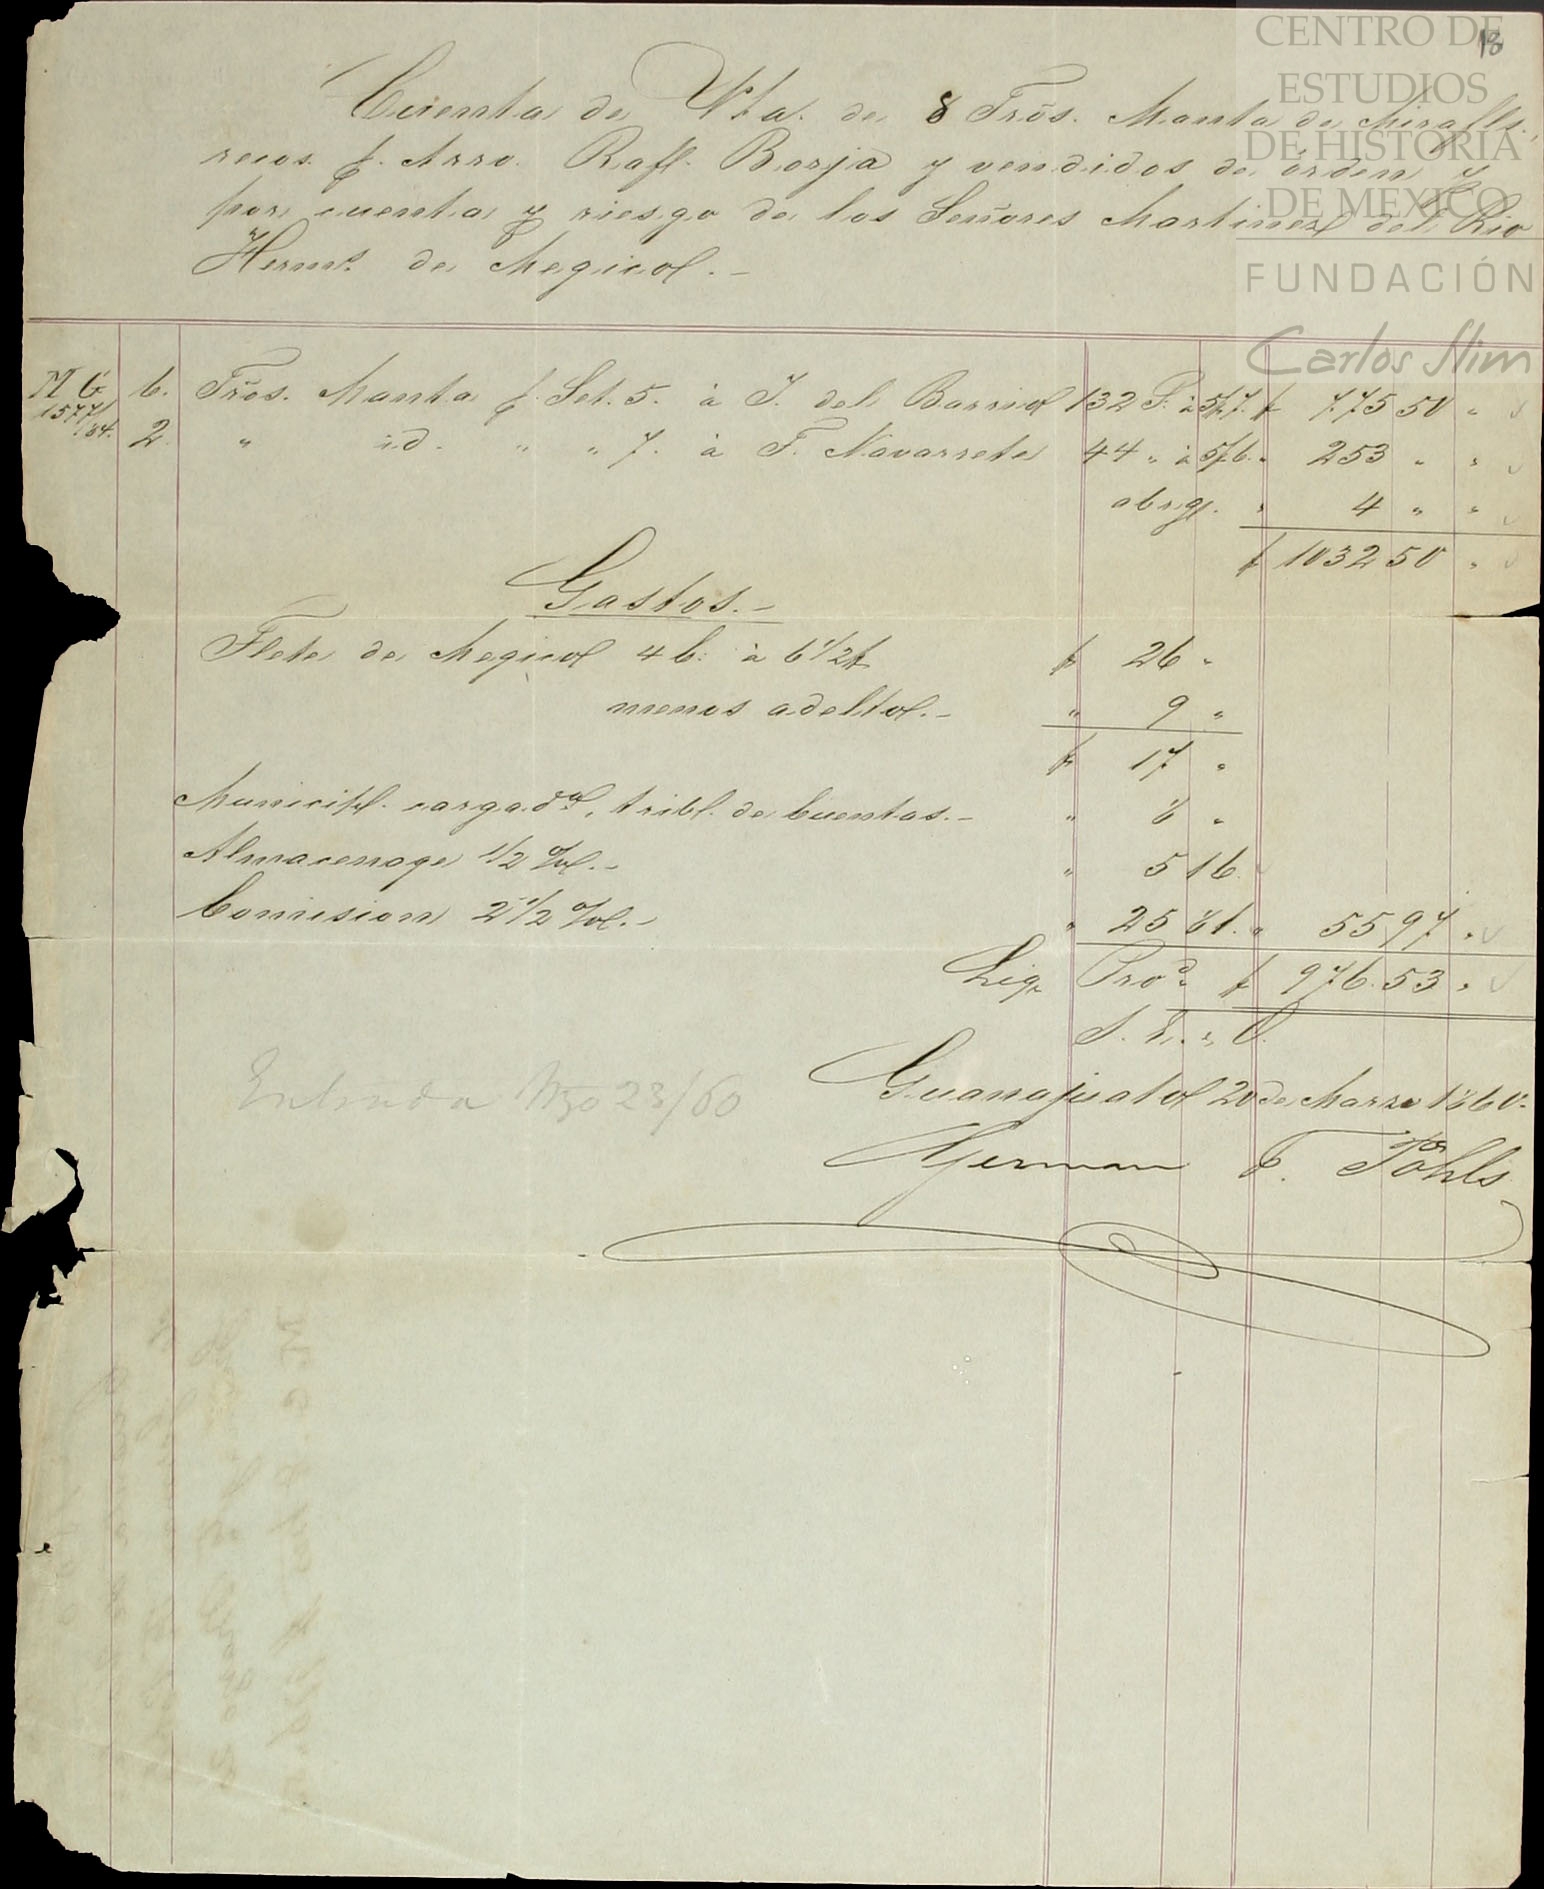 18
CENTRO DE
ESTUDIOS
DE HISTORIA
DE MEXICO
FUNDACIÓN
Carlos Slim
Cuenta de Vta. de 8 Trõs. Manta de Miraflls.
recos. p. Arro. Rafl. Borja y vendidos de órden y
por cuenta y riesgo de los Señores Martinez del Rio
Hermˢ. de Megico. –
M G 6. Trõs. Manta p. Set. 5. à J. del Barrio 132 P. à 5/7. $ 775 50 "
1577/ '84. 2. " id. " " 7. à F. Navarrete 44 " à 5/6. " 253 " "
abrg. " 4 " "
$ 1032 50 "
Gastos. –
Flete de Megico 4 b: à 6 1/2 $ $ 26 "
menos adeltо. – " 9 "
$ 17 "
Municipl. cargad., tribl. de Cuentas. – " 8 "
Almacenage 1/2 %. – " 5 16.
Comision 2 1/2 %. – " 25 81. " 55 97 "
Liq. Prod. $ 976. 53 "
S. E. u O.
Guanajuato 20 de Marzo 1860.
German F. Pohls
Entrada Mzo 23/60